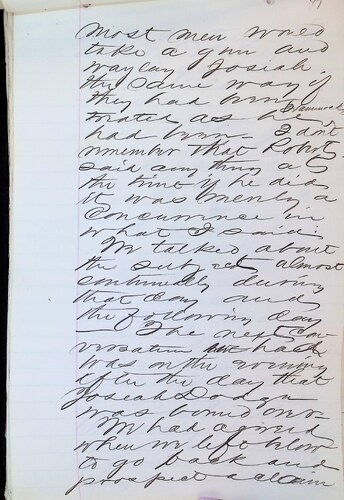 most men would
take a gun and
waylay Josiah
the same way if
they had been
treated as he
had been. I don't
remember that Roberts
said any thing at
the time if he did
it was merely a
Concurrence in
what I said.
We talked about
the subject almost
continually during
that day and
the following day
— The next Con-
versation we had
was on the evening
after the day that
Josiah Dodge
was buried on
We had agreed
when we left below
to go back and
prospect a claim